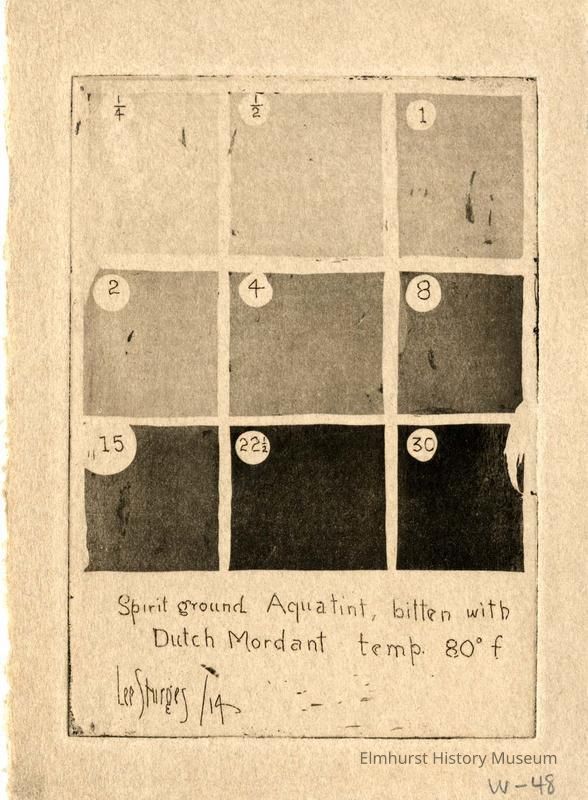 1/4 1/2 1
2 4 8
15 22 1/2 30
Spirit ground Aquatint, bitten with
Dutch Mordant temp. 80° f
Lee Sturges /14
Elmhurst History Museum
W-48